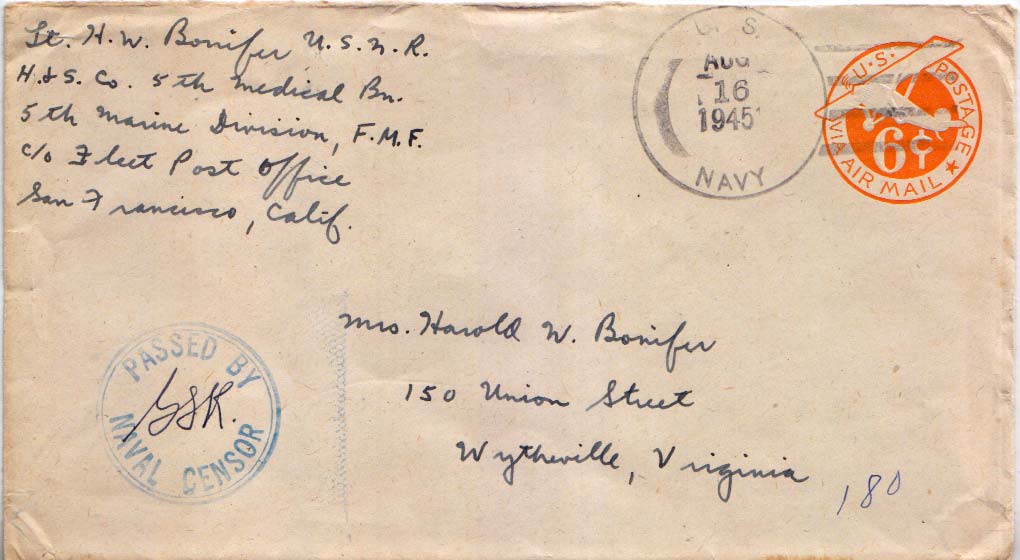 Lt. H.W. Bonifer U.S.N.R.
H.&S. Co. 5th Medical Bn.
5th Marine Division, F.M.F.
c/o Fleet Post Office
San Francisco, Calif.
U. S.
AUG
16
1945
NAVY
U.S. POSTAGE
6¢
VIA AIR MAIL
Mrs. Harold W. Bonifer
150 Union Street
Wytheville, Virginia
180
PASSED BY
NAVAL CENSOR